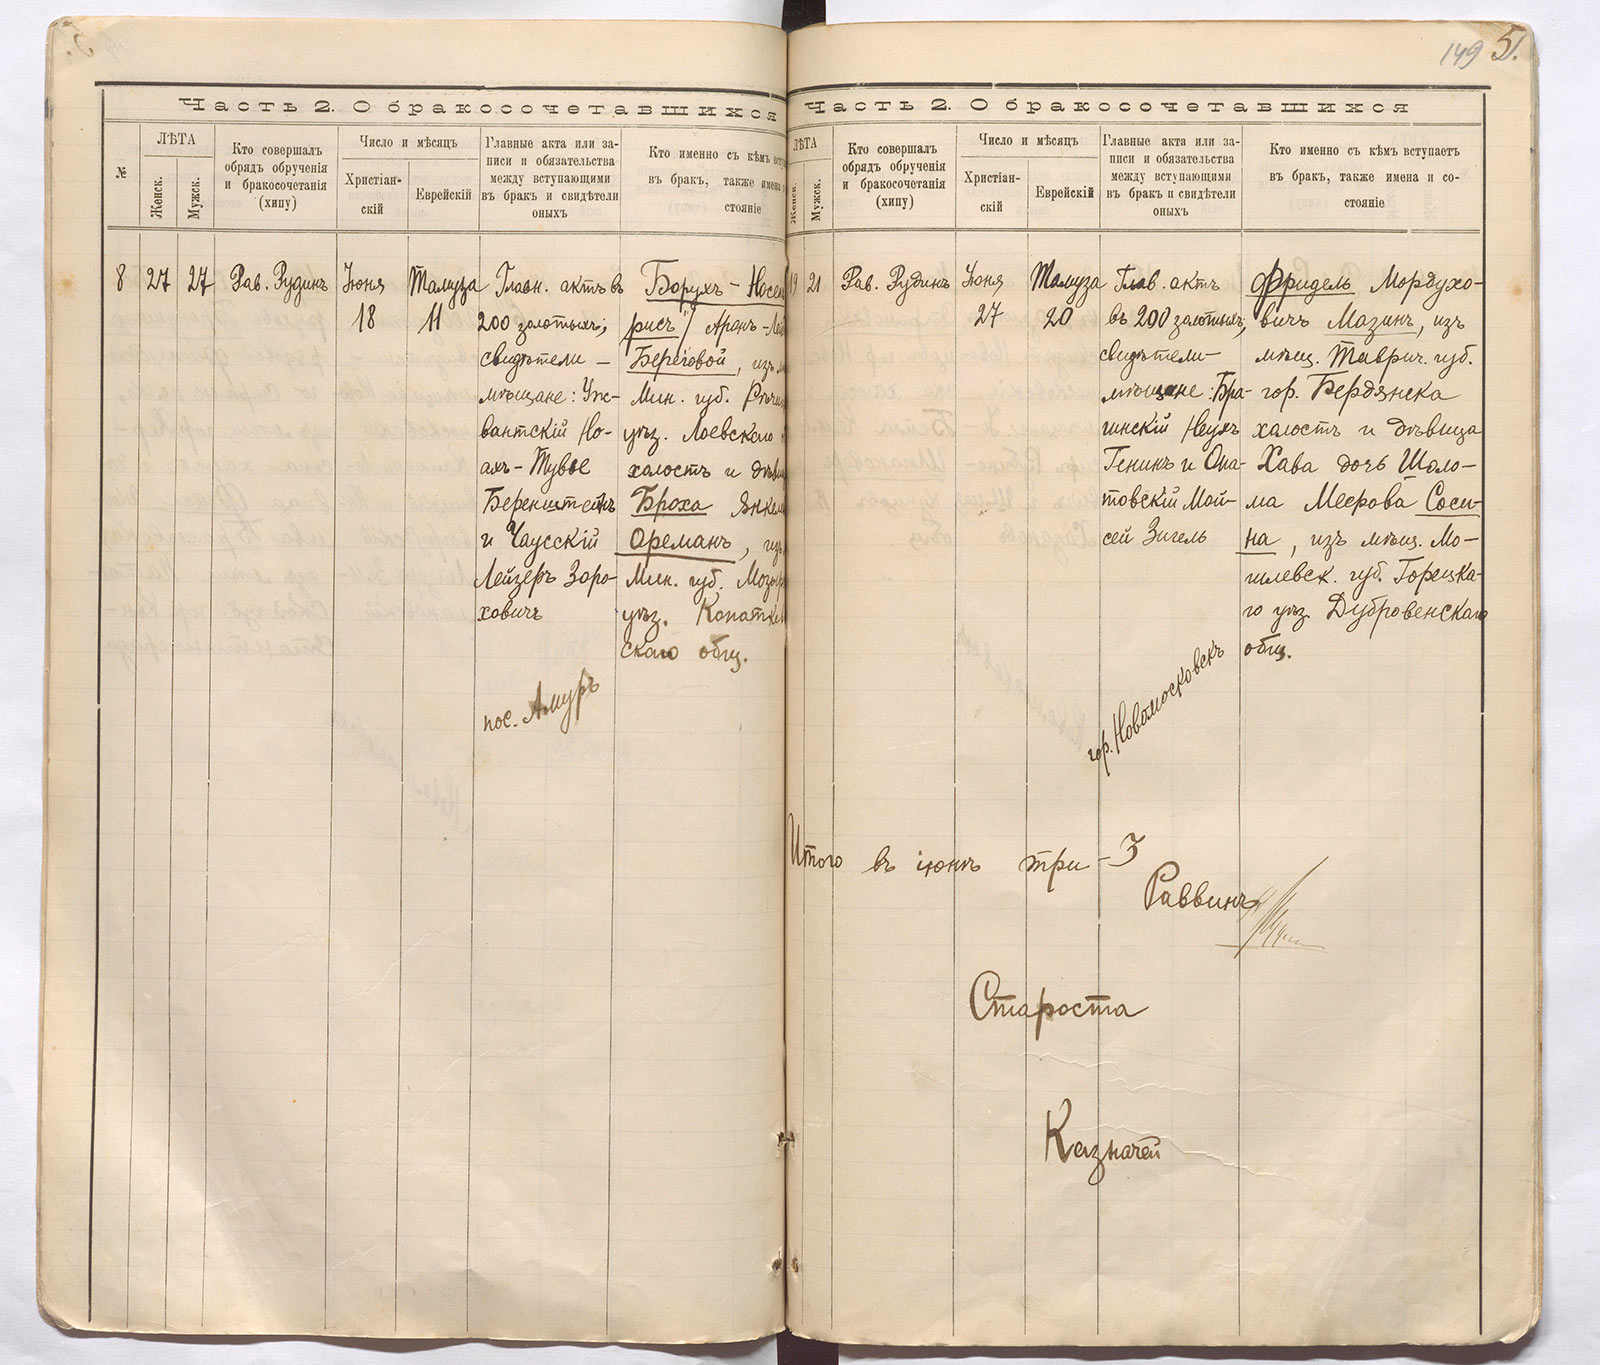 149 51.
Часть 2. О бракосочетавшихся
№
ЛѢТА
Женск.
Мужск.
Кто совершалъ
обрядъ обрученія
и бракосочетанія
(хипу)
Число и мѣсяцъ
Христіан-
скій
Еврейскій
Главные акта или за-
писи и обязательства
между вступающими
въ бракъ и свидѣтели
оныхъ
Кто именно съ кѣмъ
въ бракъ, также имена
стояніе
8
27
27
Рав. Рудинъ
Іюня
18
Тамуза
11
Главн. актъ въ
200 золотыхъ;
свидѣтели –
мѣщане: Уж-
вантскій Но-
ахъ-Тувье
Беренштейнъ
и Чаусскій
Лейзеръ Зоро-
ховичъ
пос. Амуръ
Борухъ-Носен
рисъ / Аронъ-
Береговой, изъ
Мин. губ.
уѣз. Лоевскаго
холостъ и дѣви
Броха
Ореманъ,
Мин. губ.
уѣз.
скаго общ.
Часть 2. О бракосочетавшихся
ЛѢТА
Женск.
Мужск.
Кто совершалъ
обрядъ обрученія
и бракосочетанія
(хипу)
Число и мѣсяцъ
Христіан-
скій
Еврейскій
Главные акта или за-
писи и обязательства
между вступающими
въ бракъ и свидѣтели
оныхъ
Кто именно съ кѣмъ вступаетъ
въ бракъ, также имена и со-
стояніе
19
21
Рав. Рудинъ
Іюня
27
Тамуза
20
Глав. актъ
въ 200 золотыхъ,
свидѣтели–
мѣщане: Бра-
гинскій Неухъ
Генинъ и Опа-
товскій Мой-
сей Зигель
гор. Новомосковскъ
Фридель Мордухо-
вичъ Мазинъ, изъ
мѣщ. Таврич. губ.
гор. Бердянска
холостъ и дѣвица
Хава дочь Шоло-
ма Меерова Соси-
на, изъ мѣщ. Мо-
гилевск. губ. Горецка-
го уѣз. Дубровенскаго
общ.
Итого въ іюнѣ три – 3
Раввинъ
Староста
Казначей